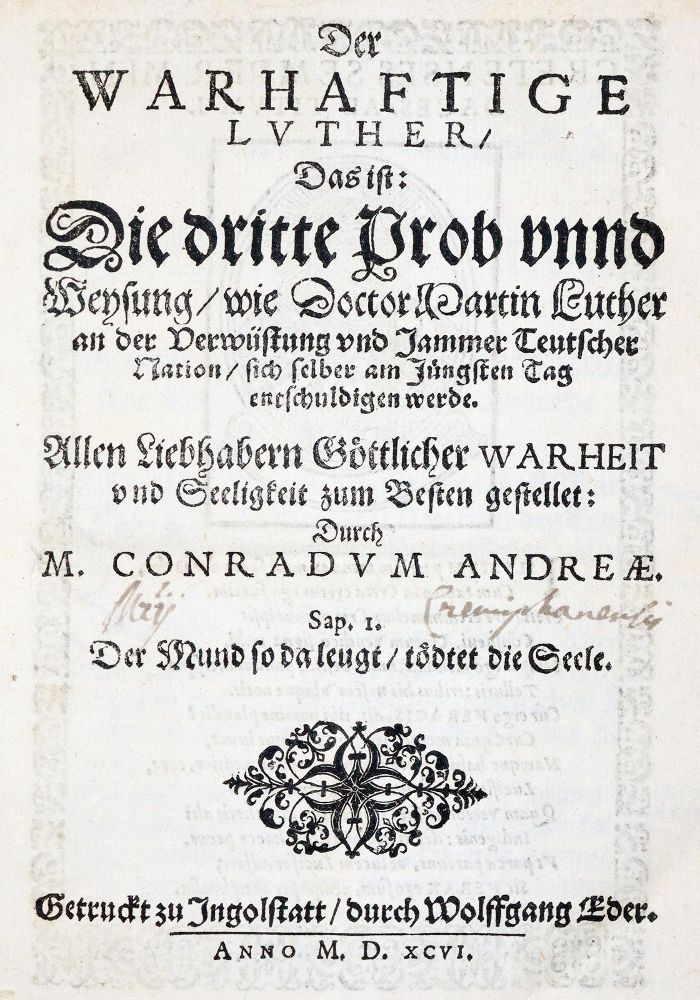 Der
WARHAFTIGE
LVTHER/
Das ist:
Die dritte Prob vnnd
Weysung/ wie Doctor Martin Luther
an der Verwüstung vnd Jammer Teutscher
Nation/ sich selber am Jüngsten Tag
entschuldigen werde.
Allen Liebhabern Göttlicher WARHEIT
vnd Seeligkeit zum Besten gestellet:
Durch
M. CONRADVM ANDREÆ.
Cremiphanensis
Sap. 1.
Der Mund so da leugt/ tödtet die Seele.
Getruckt zu Ingolstatt/ durch Wolffgang Eder.
ANNO M. D. XCVI.